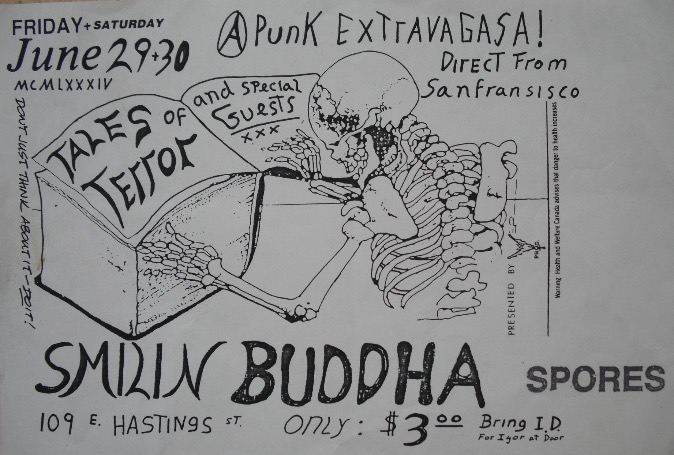 FRIDAY + SATURDAY
June 29+30
MCMLXXXIV
A PUNK EXTRAVAGASA!
DIRECT From
Sanfransisco
TALES OF
TERROR
and special
Guests
XXX
DON'T JUST THINK ABOUT IT - DO IT!
PRESENTED BY
Warning: Health and Welfare Canada advises that danger to health increases
SMILIN BUDDHA
SPORES
109 E. HASTINGS ST. ONLY: $3.00 Bring I.D.
For Igor at Door